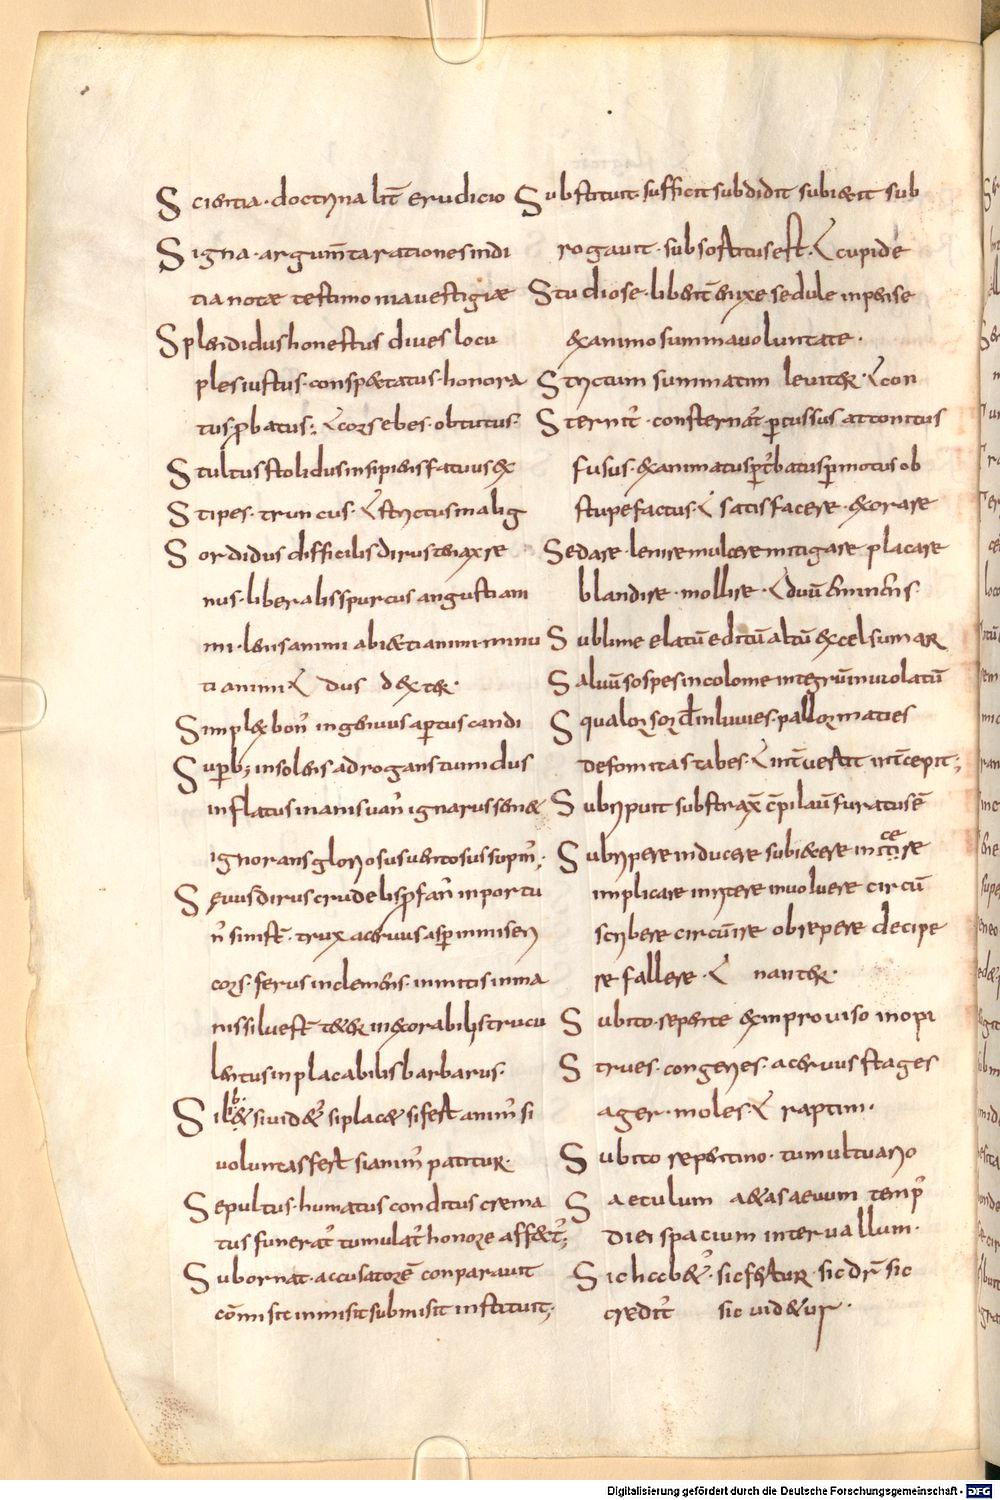 Scientia·doctrina lit̄ erudicio
Signa·argum̄ta rationes indi
tia notæ testimonia vestigiæ
Splendidus honestus dives locu
ples iustus·conspectatus·honora
tus p̱batus·
Stultus stolidus insipiens fatuus ex
Stipes·truncus· strictus malig
Sordidus difficilis dirus tenax re
nus·liberalis spurcus angusti am
mi·lens animi abiecti animi·minu
ti animi dus dext&·
Simplex bon' ingenuus aptus candi
Supb; insolens adrogans tumidus
inflatus inanis van' ignarus sen&
ignorans gloriosus ventosus supm̄;
Sevus dirus crudelis p̱fan' inportu
n' sinist̄·trux acervus asp inmiseri
cors·ferus inclemens·inmitis inma
nis silvest̄ t&& inexorabilis trucu
lentus inplacabilis barbarus·
Silib& si vid&' si plac& si fert anim' si
voluntas fert si anim' patitur·
Sepultus·humatus conditus crema
tus funerat' tumulat' honore affect';
Subornat·accusatorē conparavit
cōmisit inmisit submisit instituit;
Substituit·sufficit subdidit subiecit sub
rogavit·sub sostitus est· cupide
Studiose·libent̄ enixe sedule inpense
ex animo summa voluntate·
Strictum summatim leviter· con
Sternit'·consternat' pcussus attonitus
fusus·exanimatus pt'batus pmotus ob
stupefactus· satisfacere·exorare
Sedare·lenire mulcere mitigare placare
blandire·mollire·
Sublime elatū editū altū excelsum ar
Salvū sospes incolome integrū inviolatū
Squalor sord̄ inluvies·pallor maties
defomitas tabes· int̄vertit int̄cepit;
Subripuit subtrax̄ c̄pilavit furatus ē
Subripere inducere subicere in
ce
implicare inritere involvere circū
scribere circūire obrepere decipe
re fallere· nanter·
Subito·repente ex improviso inopi
Strues·congeries·acervus stages
ager·moles· raptim·
Subito repentino·tumultuario
Saeculum aetas aevum temp'
diei spacium intervallum·
Sic hab&'·sic fertur·sic dr̄ sic
credit' sic videtur·
Digitalisierung gefördert durch die Deutsche Forschungsgemeinschaft - DFG